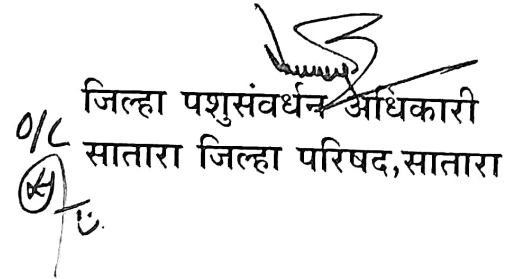 जिल्हा पशुसंवर्धन अधिकारी
सातारा जिल्हा परिषद,सातारा
O/C